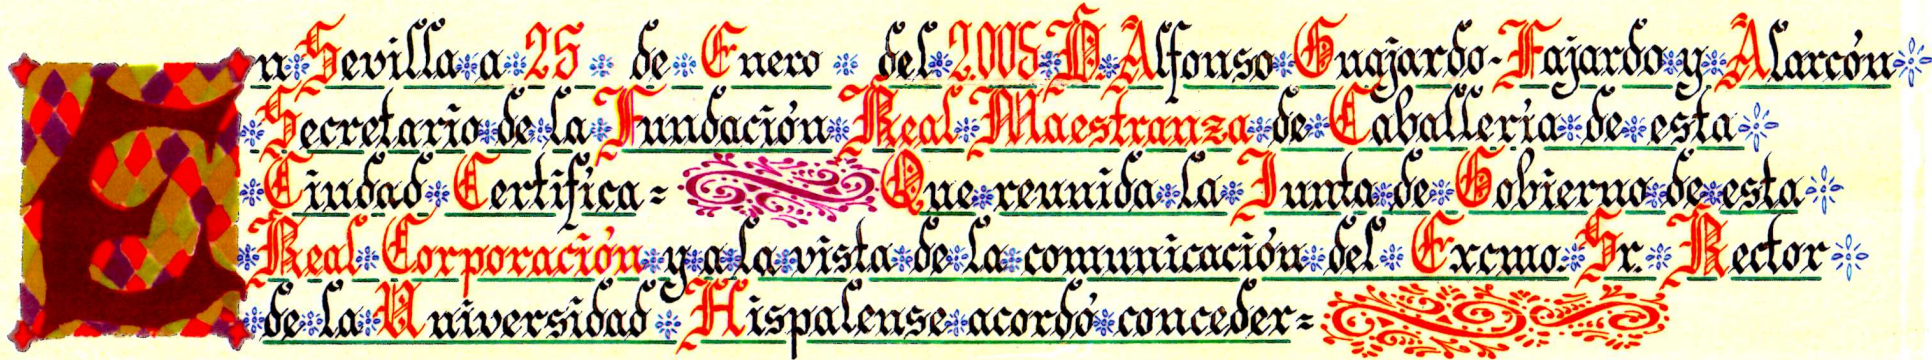 En Sevilla a 25 de Enero del 2005 D. Alfonso Guajardo-Fajardo y Alarcón
Secretario de la Fundación Real Maestranza de Caballería de esta
Ciudad Certifica= Que reunida la Junta de Gobierno de esta
Real Corporación y a la vista de la comunicación del Excmo. Sr. Rector
de la Universidad Hispalense acordó conceder=